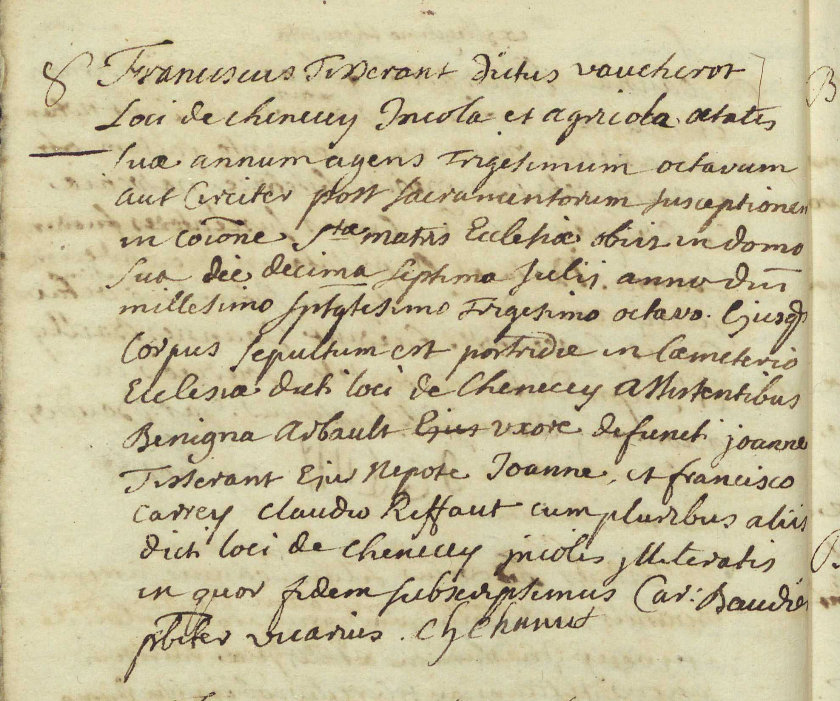 8 Franciscus Tisserant dictus vaucherot
Loci de chenecey Incola et agricola ætatis
suæ annum agens Trigesimum octavum
aut Circiter post sacramentorum susceptionem
in coione stæ matris Ecclesiæ obiit in domo
sua die decima septima Julij anno dni
millesimo sptgtesimo Trigesimo octavo. Ejusq
Corpus sepultum est postridie in Cæmeterio
Ecclesiæ dicti loci de Chenecey assistentibus
Benigna Arbault Ejus uxore defuncti joanne
Tisserant Ejus Nepote Joanne, et francisco
Carrey Claudio Riffaut cum pluribus aliis
dicti loci de chenecey jncolis jlliteratis
in quor fidem subscripsimus Car:
pbiter vicarius.